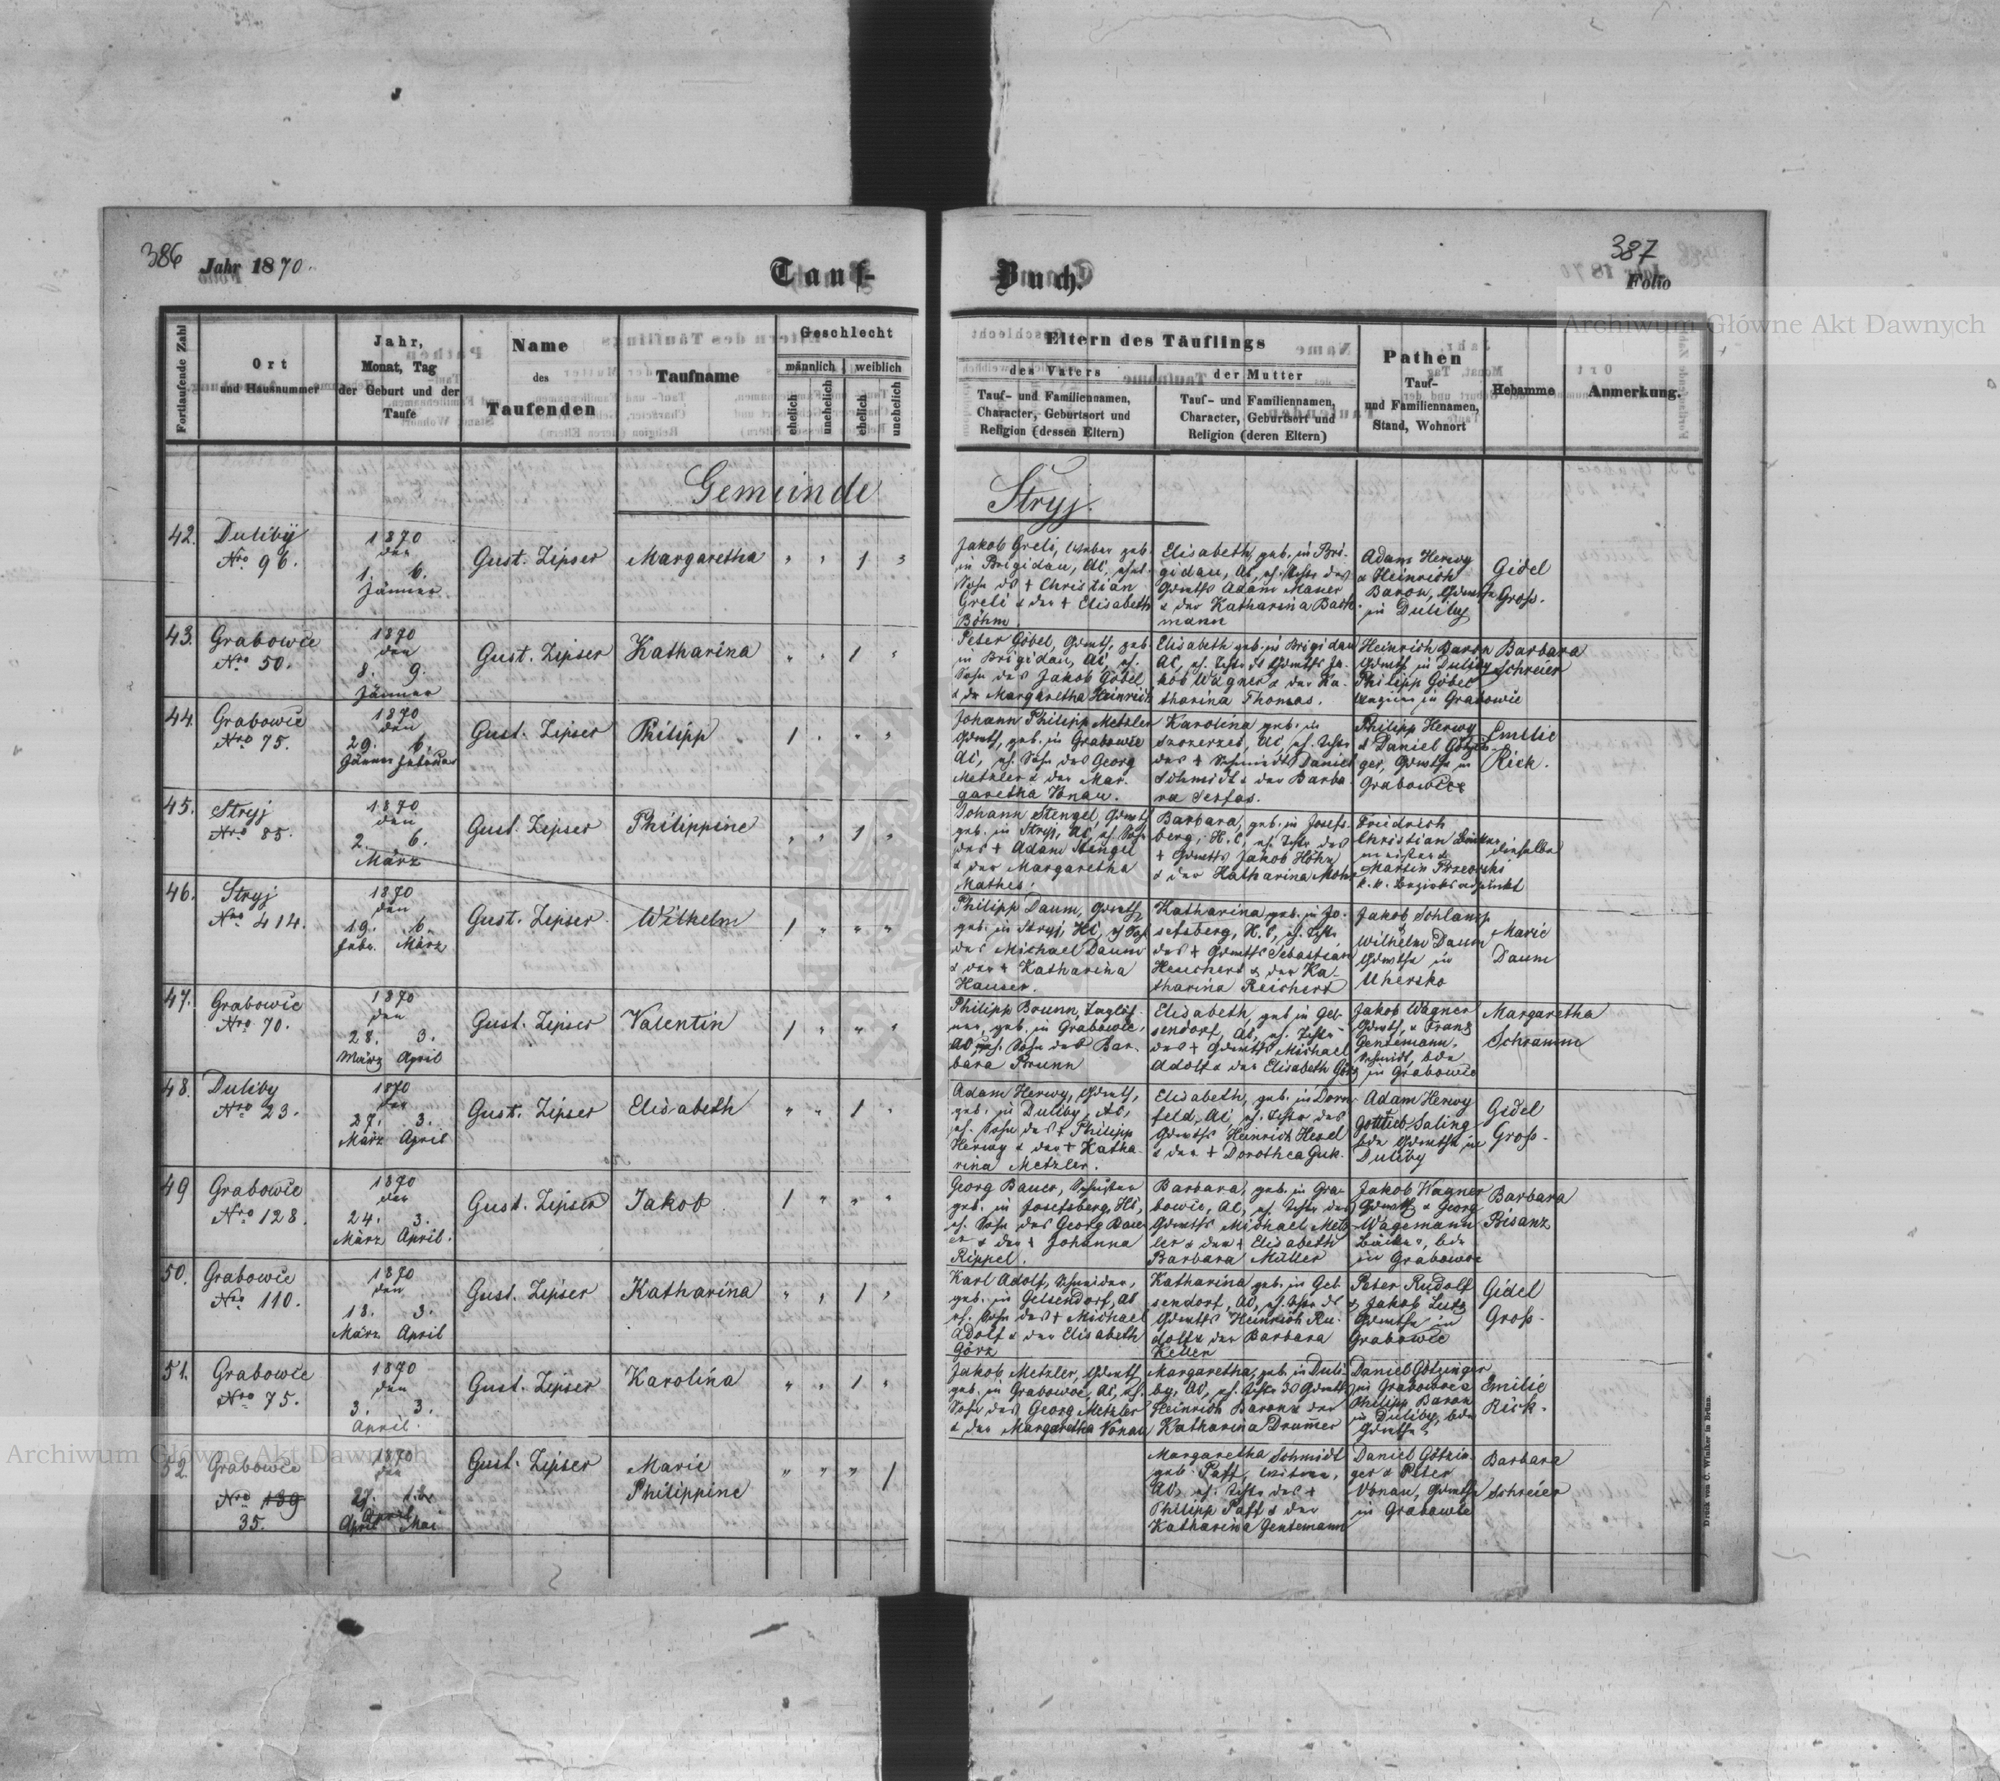 386
Jahr 1870.
Tauf-
Buch.
387
Folio
Archiwum Główne Akt Dawnych
Fortlaufende Zahl
Ort
und Hausnummer
Jahr,
Monat, Tag
der Geburt und der
Taufe
Name
des
Taufenden
Taufname
Geschlecht
männlich
weiblich
ehelich
unehelich
ehelich
unehelich
Eltern des Täuflings
des Vaters
Tauf- und Familiennamen,
Character, Geburtsort und
Religion (dessen Eltern)
der Mutter
Tauf- und Familiennamen,
Character, Geburtsort und
Religion (deren Eltern)
Pathen
Tauf-
und Familiennamen,
Stand, Wohnort
Hebamme
Anmerkung.
Gemeinde
Stryj.
42.
Duliby
Nro 96.
1870
den
1. 6.
Jänner
Gust. Zipser
Margaretha
" " 1 "
Jakob Greli, Weber geb.
in Brigidau, AC, ehel.
Sohn des † Christian
Greli & der † Elisabeth
Böhm.
Elisabeth, geb. in Bri-
gidau, AC, eh. Tchtr des
Grdwths Adam Mauer
& der Katharina Bach-
mann
Adam Herwy
& Heinrich
Baron, Grdwthe
in Duliby
Gidel
Groß.
43.
Grabowce
Nro 50.
1870
den
8. 9.
Jänner
Gust. Zipser
Katharina
" " 1 "
Peter Göbel, Grdwth, geb.
in Brigidau, AC, eh.
Sohn des Jakob Göbel
& der Margaretha Heinrich
Elisabeth geb. in Brigidau
AC, eh. Tchtr ds Grdwths Ja-
kob Wagner & der Ka-
tharina Thomas.
Heinrich Baron
Grdwth in Duliby
Philipp Göbel
in Grabowce
Barbara
Schreier
44.
Grabowce
Nro 75.
1870
den
29. 6.
Jänner Februar
Gust. Zipser
Philipp
1 " " "
Johann Philipp Metzler
Grdwth, geb. in Grabowce
AC, eh. Sohn des Georg
Metzler & der Mar-
garetha Vonau.
Karolina geb. in
AC, eh. Tchtr
des † Schmieds Daniel
Schmidt & der Barba-
ra Serfas.
Philipp Herwy
& Daniel Götzin-
ger, Grdwthe in
Grabowce
Emilie
Rick.
45.
Stryj
Nro 85.
1870
den
2. 6.
März
Gust. Zipser
Philippine
" " 1 "
Johann Stengel, Grdwth
geb. in Stryj, AC, eh. Sohn
des † Adam Stengel
& der Margaretha
Mathes.
Barbara, geb. in Josefs-
berg, H.C, eh. Tchtr des
† Grdwths Jakob Höhn
& der Katharina Mohr
Friedrich
Christian
meister &
Martin Przeorski
k. k. Bezirksadjunkt
dieselbe
46.
Stryj
Nro 414.
1870
den
19. 6.
Febr. März
Gust. Zipser.
Wilhelm
1 " " "
Philipp Daum, Grdwth
geb. in Stryj, HC, eh Sohn
des Michael Daum
& der † Katharina
Hauser.
Katharina, geb. in Jo-
sefsberg, H.C, eh. Tchtr
des † Grdwths Sebastian
Heuchert & der Ka-
tharina Reichert
Jakob Schlamp
&
Wilhelm Daum
Grdwthe in
Uhersko
Marie
Daum
47.
Grabowce
Nro 70.
1870
den
28. 3.
März April
Gust. Zipser
Valentin
1 " " "
Philipp Brunn, Taglöh-
ner, geb. in Grabowce,
AC, uneh. Sohn der Bar-
bara Brunn
Elisabeth, geb in Gel-
sendorf, AC, eh. Tchtr
des † Grdwths Michael
Adolf & der Elisabeth Görz
Jakob Wagner
Grdwth, & Franz
Gentemann,
Schmidt, bde
in Grabowce
Margaretha
Schramm
48.
Duliby
Nro 23.
1870
den
27. 3.
März April
Gust. Zipser
Elisabeth
" " 1 "
Adam Herwy, Grdwth,
geb. in Duliby, AC,
eh. Sohn des † Philipp
Herwy & der † Katha-
rina Metzler.
Elisabeth, geb. in Dorn-
feld, AC, eh. Tchtr des
Grdwths Heinrich Hexel
& der † Dorothea Guk.
Adam Herwy
Gottlieb Saling
bde Grdwthe in
Duliby
Gidel
Groß.
49
Grabowce
Nro 128.
1870
den
24. 3.
März April.
Gust. Zipser
Jakob
1 " " "
Georg Bauer, Schuster
geb. in Josefsberg, HC,
eh. Sohn des Georg Bau-
er & der † Johanna
Rippel.
Barbara, geb. in Gra-
bowce, AC, eh. Tchtr des
Grdwths Michael Metz-
ler & der † Elisabeth
Barbara Müller
Jakob Wagner
Grdwth & Georg
Wagemann
Bäcker, bde
in Grabowce
Barbara
Bisanz
50.
Grabowce
Nro 110.
1870
den
13. 3.
März April
Gust. Zipser
Katharina
" " 1 "
Karl Adolf, Schneider,
geb. in Gelsendorf, AC
eh. Sohn des † Michael
Adolf & der Elisabeth
Görz
Katharina geb. in Gel-
sendorf, AC, eh. Tchtr ds
Grdwths Heinrich Ru-
dolf & der Barbara
Keller
Peter Rudolf
& Jakob Lutz
Grdwthe in
Grabowce
Gidel
Groß.
51.
Grabowce
Nro 75.
1870
den
3. 3.
April.
Gust. Zipser
Karolina
" " 1 "
Jakob Metzler, Grdwth
geb. in Grabowce, AC, eh.
Sohn des Georg Metzler
& der Margaretha Vonau
Margaretha, geb. in Duli-
by, AC, eh. Tchtr des Grdwths
Heinrich Baron & der
Katharina Drumer
Daniel Götzinger
in Grabowce &
Philipp Baron
in Duliby, bde
Grdwthe
Emilie
Rick.
52.
Grabowce
Nro 139
35.
1870
den
27.
April Mai
Gust. Zipser
Marie
Philippine
" " " 1
Margaretha Schmidt
geb. Paff, Witwe,
AC, eh. Tchtr des †
Philipp Paff & der
Katharina Gentemann
Daniel Götzin-
ger & Peter
Vonau, Grdwthe
in Grabowce
Barbara
Schreier
Archiwum Główne Akt Dawnych
Druck von C. Winiker in Brünn.